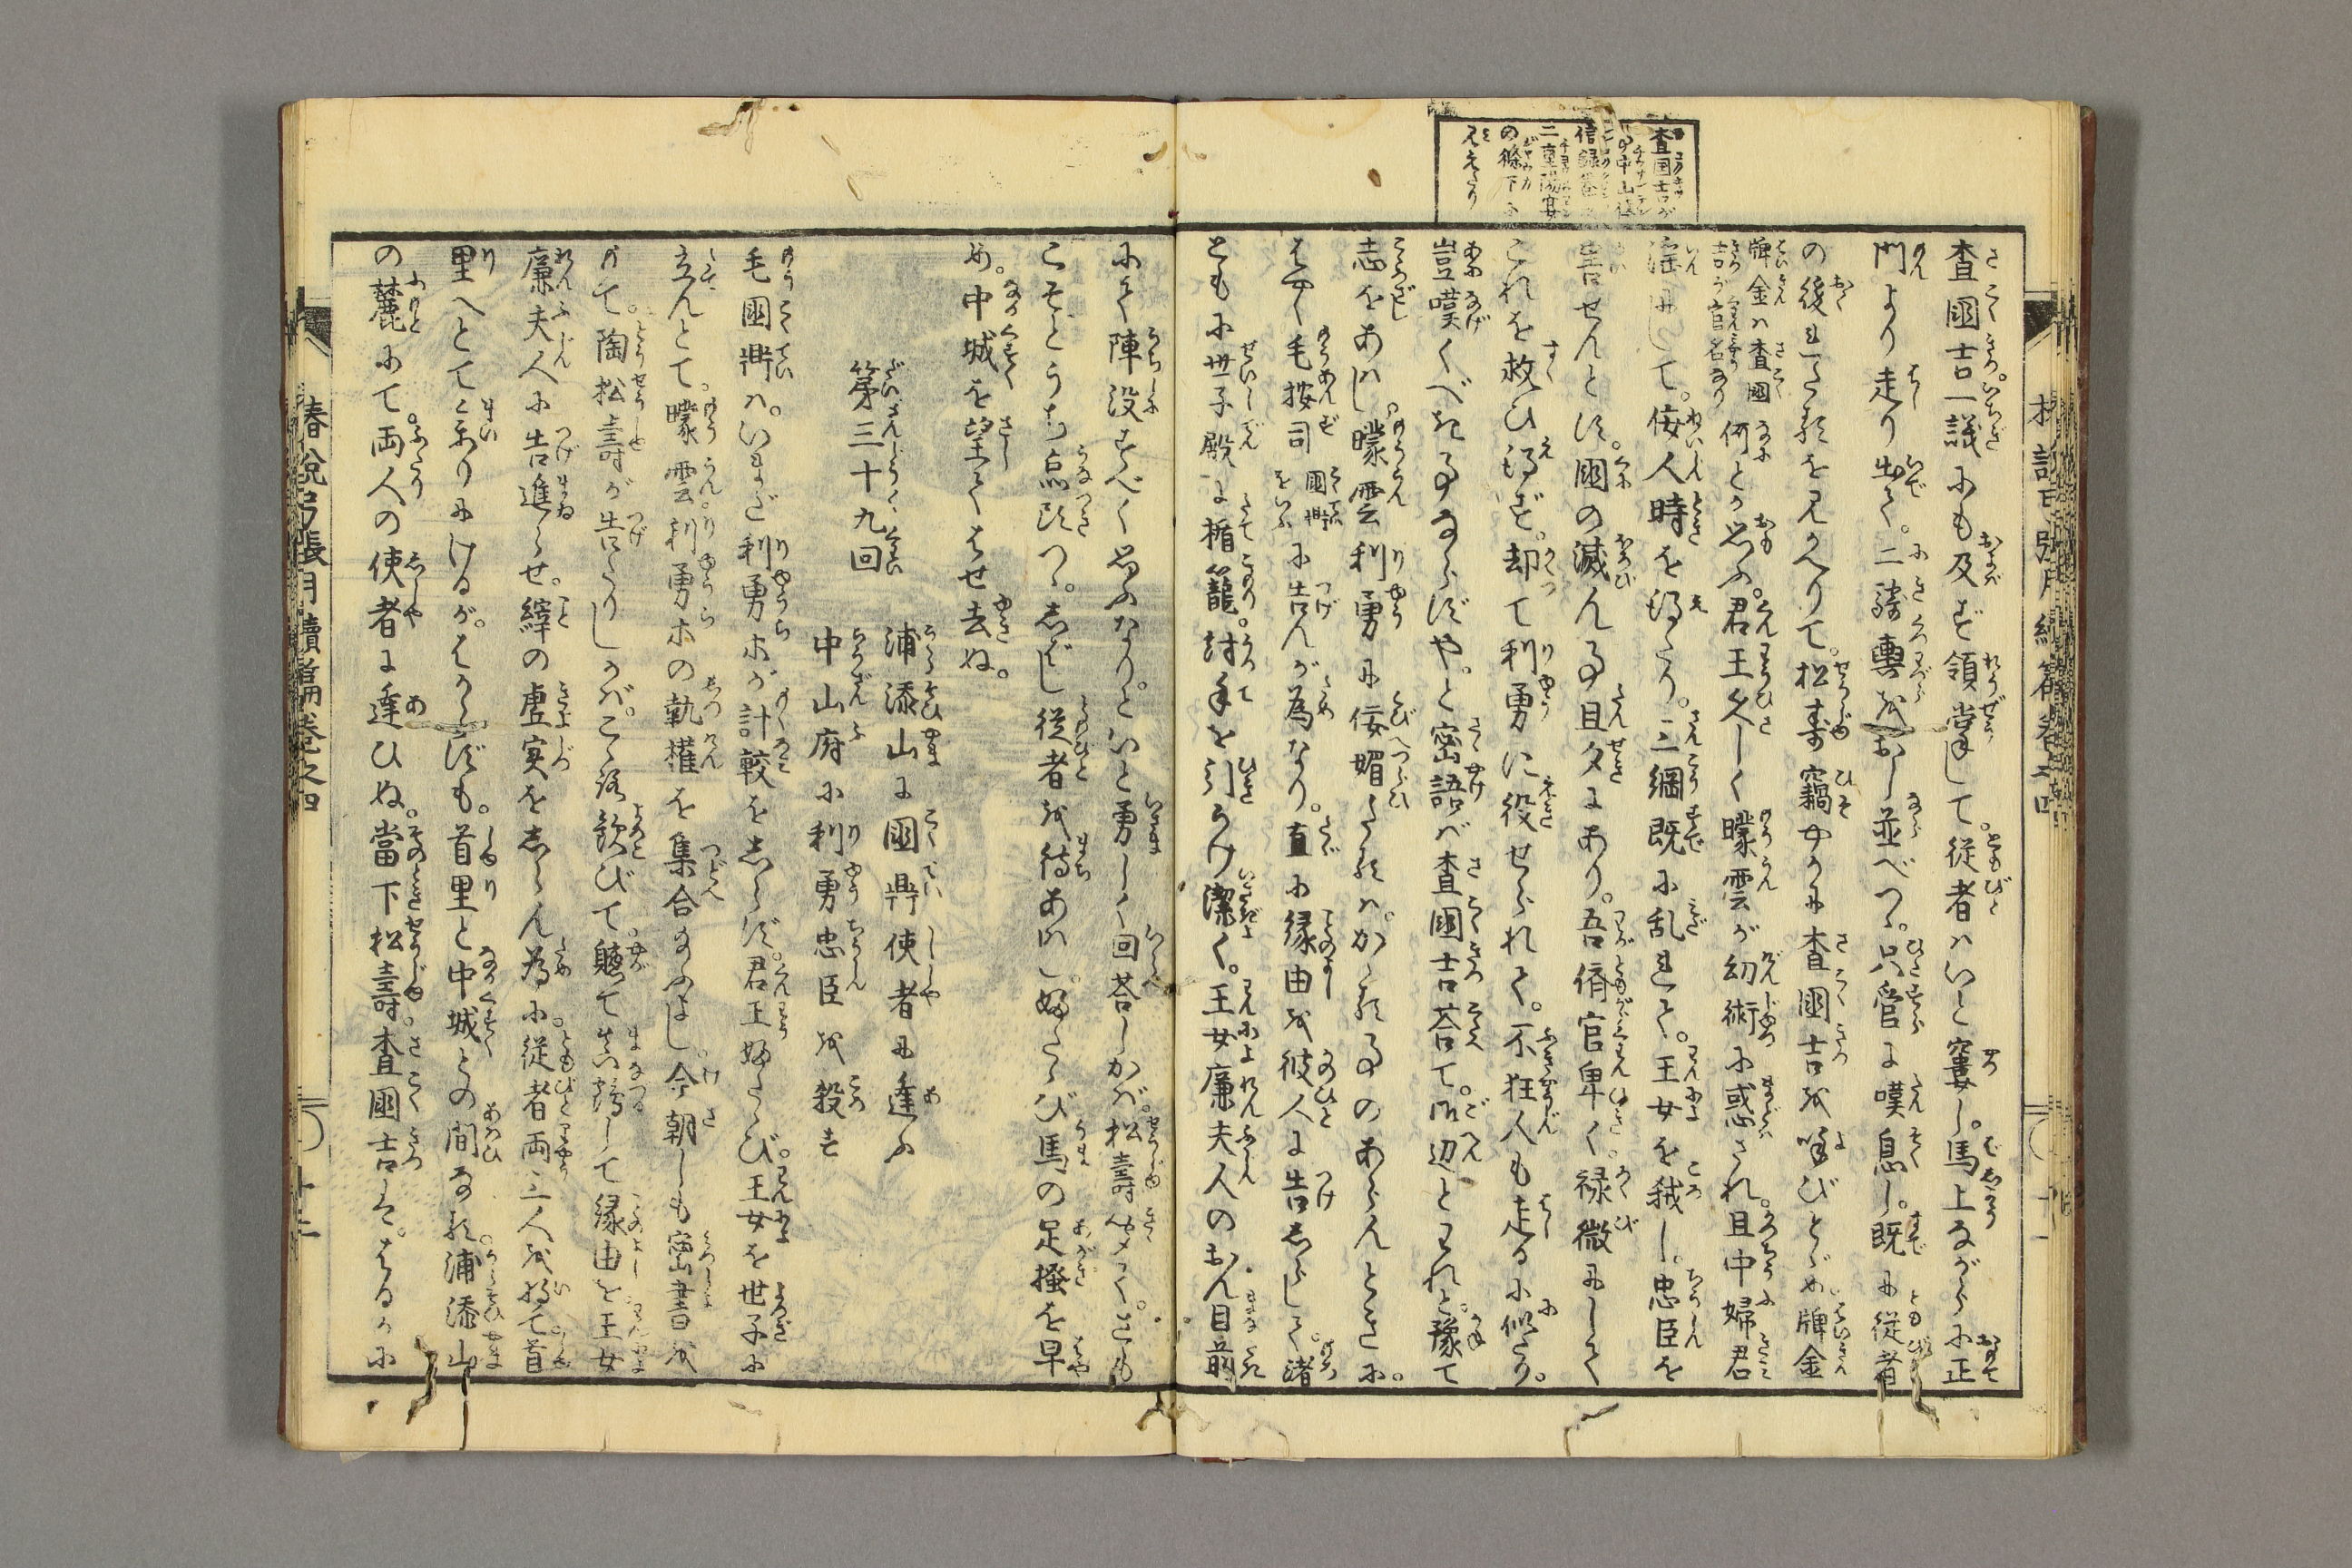 査國吉が
中山傳
信録巻之
二重陽宴
の條下に
見えたり
査國吉一議にも及ばず領掌して。従者はいと窶し。馬上ながらに正
門より走り出て。二騎轡をおし並べつゝ。只管に嘆息し。既に従者
の後れたるを見かへりて。松寿竊やかに査國吉を呼びとゞめ。牌金
牌金は査國吉が官名なり 何とか思ふ。君王久しく曚雲が幻術に惑され。且中婦君
淫にして。佞人時を得たり。三綱既に乱れて。王女を弑し。忠臣を
害せんとす。國の滅ん事旦夕にあり。吾儕官卑く。禄微にして
これを救ひ得ず。却て利勇に役せられて。不狂人も走るに似たり。
豈嘆くべき事ならずや。と密語ば査國吉荅て。御辺とわれと。豫て
志をあはし。曚雲利勇に佞媚たるは。かゝる事のあらんときに。
はやく毛按司 國鼎をいふ に告んが為なり。直に縁由を彼人に告しらして。渚
ともに世子殿に楯籠。討手を引うけ潔く。王女廉夫人のおん目前
にて陣没すべく思ふなり。といと勇しく回荅しかば。松壽聞て。さも
こそとうち点頭つゝ。しばし従者を待あはし。ふたゝび馬の足掻を早
め。中城を望てはせ去ぬ。
第三十九回
浦添山に國鼎使者に逢ふ
中山府に利勇忠臣を殺す
毛國鼎は。いまだ利勇ホが計較をしらず。君王ふたゝび。王女を世子に
立んとて。曚雲利勇ホの執権を集合給ふよし。今朝しも密書を
もて。陶松壽が告たりしかば。こゝろ歓びて。軈て真鶴して縁由を王女
廉夫人に告進らせ。縡の虚実をしらん為に。従者両三人を将て首
里へとて参りにけるが。はからずも。首里と中城との間なる。浦添山
の麓にて。両人の使者に逢ひぬ。當下松壽。査國吉は。はるかに
椿説弓張月續篇巻之四